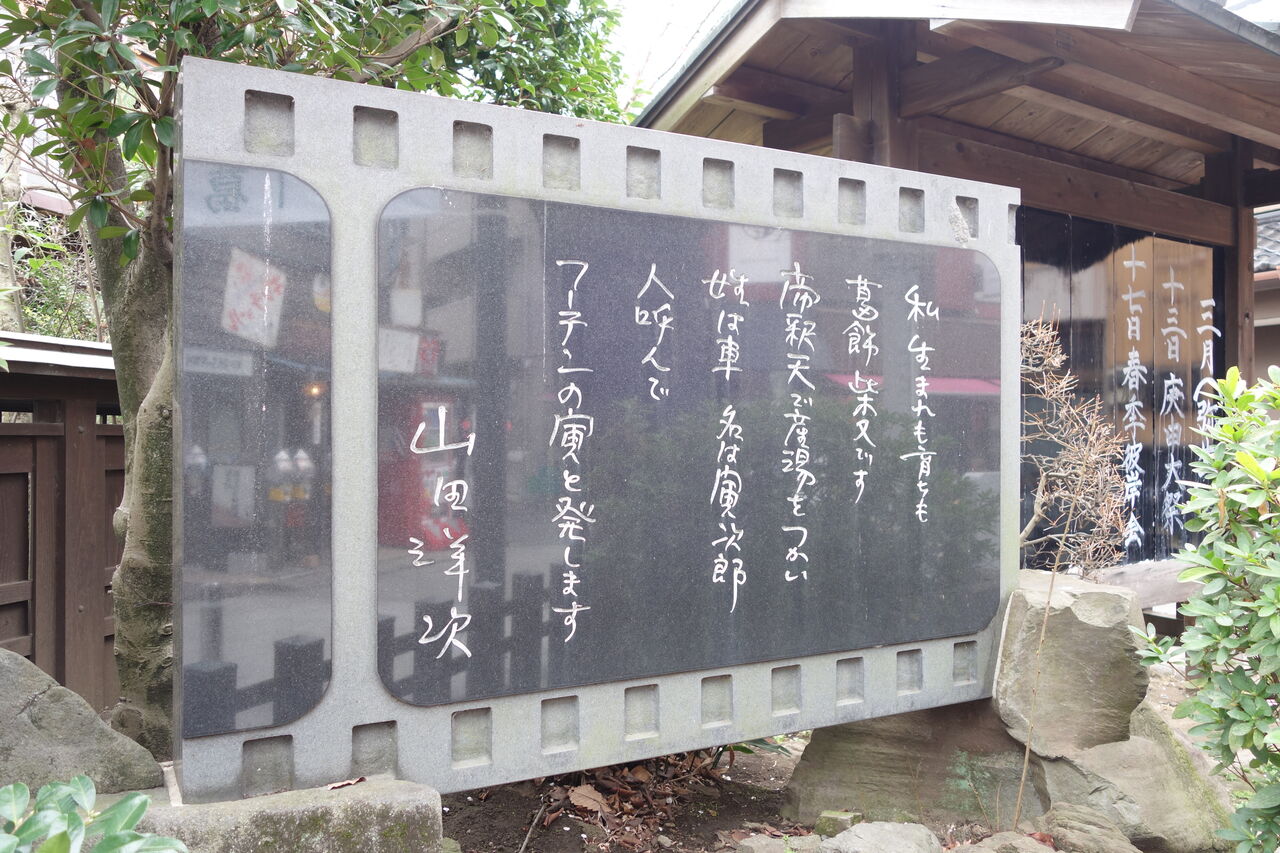 私 生まれも育ちも
葛飾 柴又です
帝釈天で産湯をつかい
姓は車 名は寅次郎
人呼んで
フーテンの寅と発します
山田洋次
三月
十三日 庚申大祭
十七日 春季彼岸会